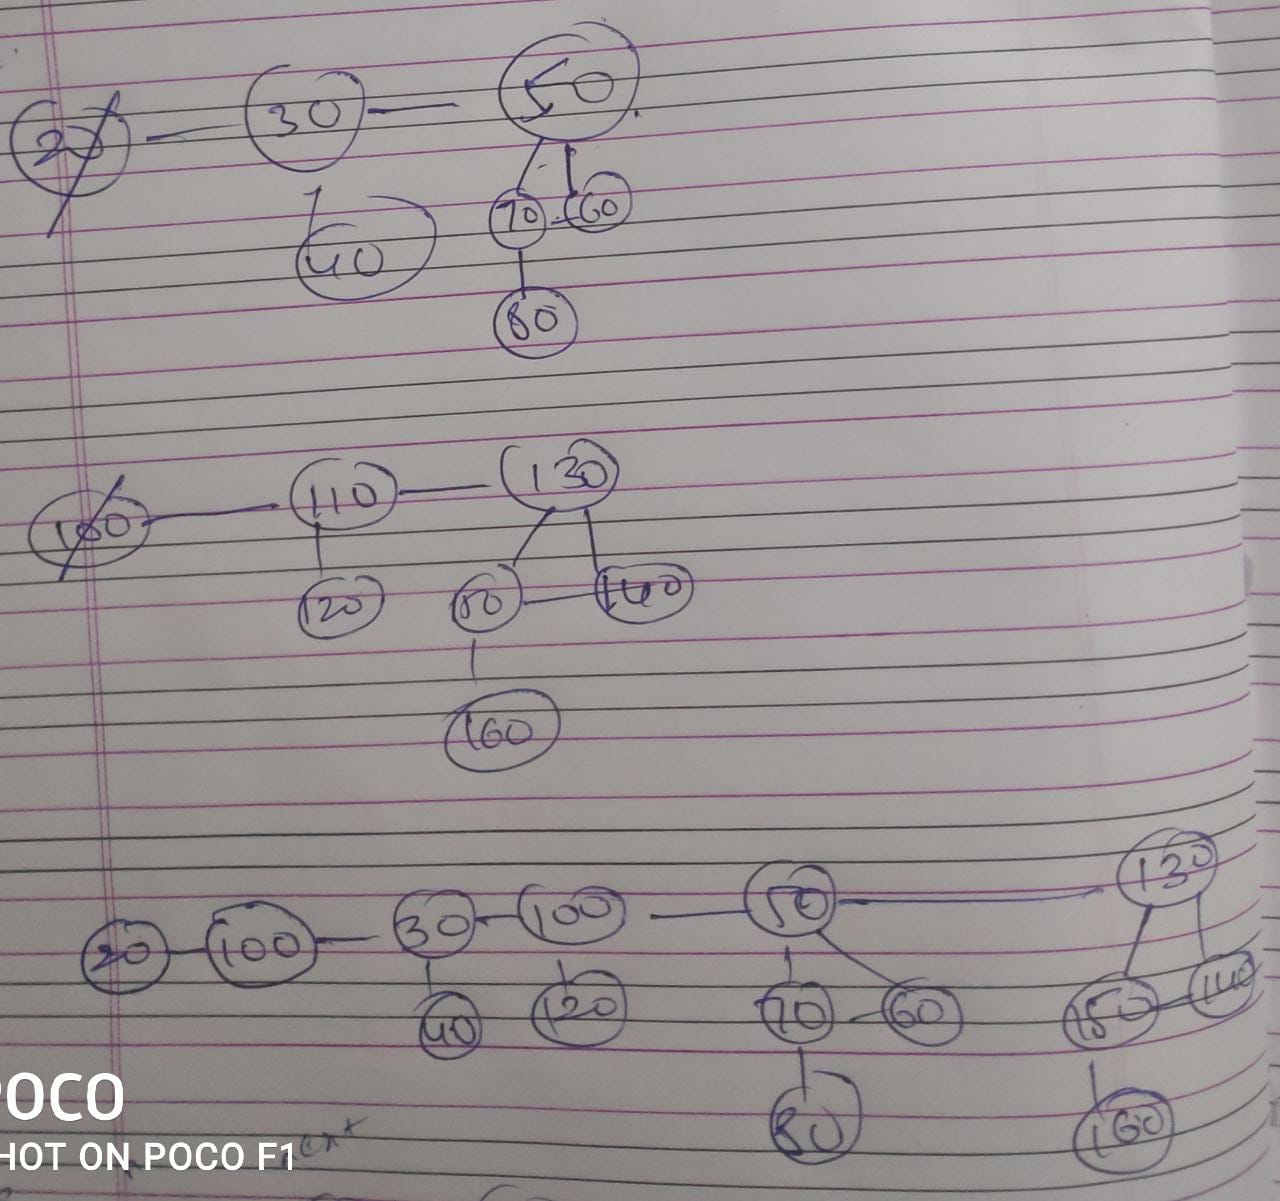 20 30 50
40 70 60
80
100 110 130
120 150 140
160
20 100 30 100 50 130
40 120 70 60 150 140
80 160
POCO
SHOT ON POCO F1